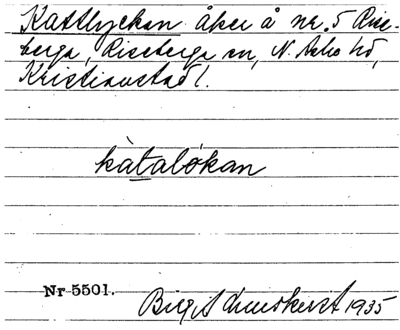 Kattlyckan åker å nr. 5 Rise-
berga, Riseberga sn, N. Åsbo hd,
Kristianstad l.
kàtalókan
Nr 5501.
Birgit 1935